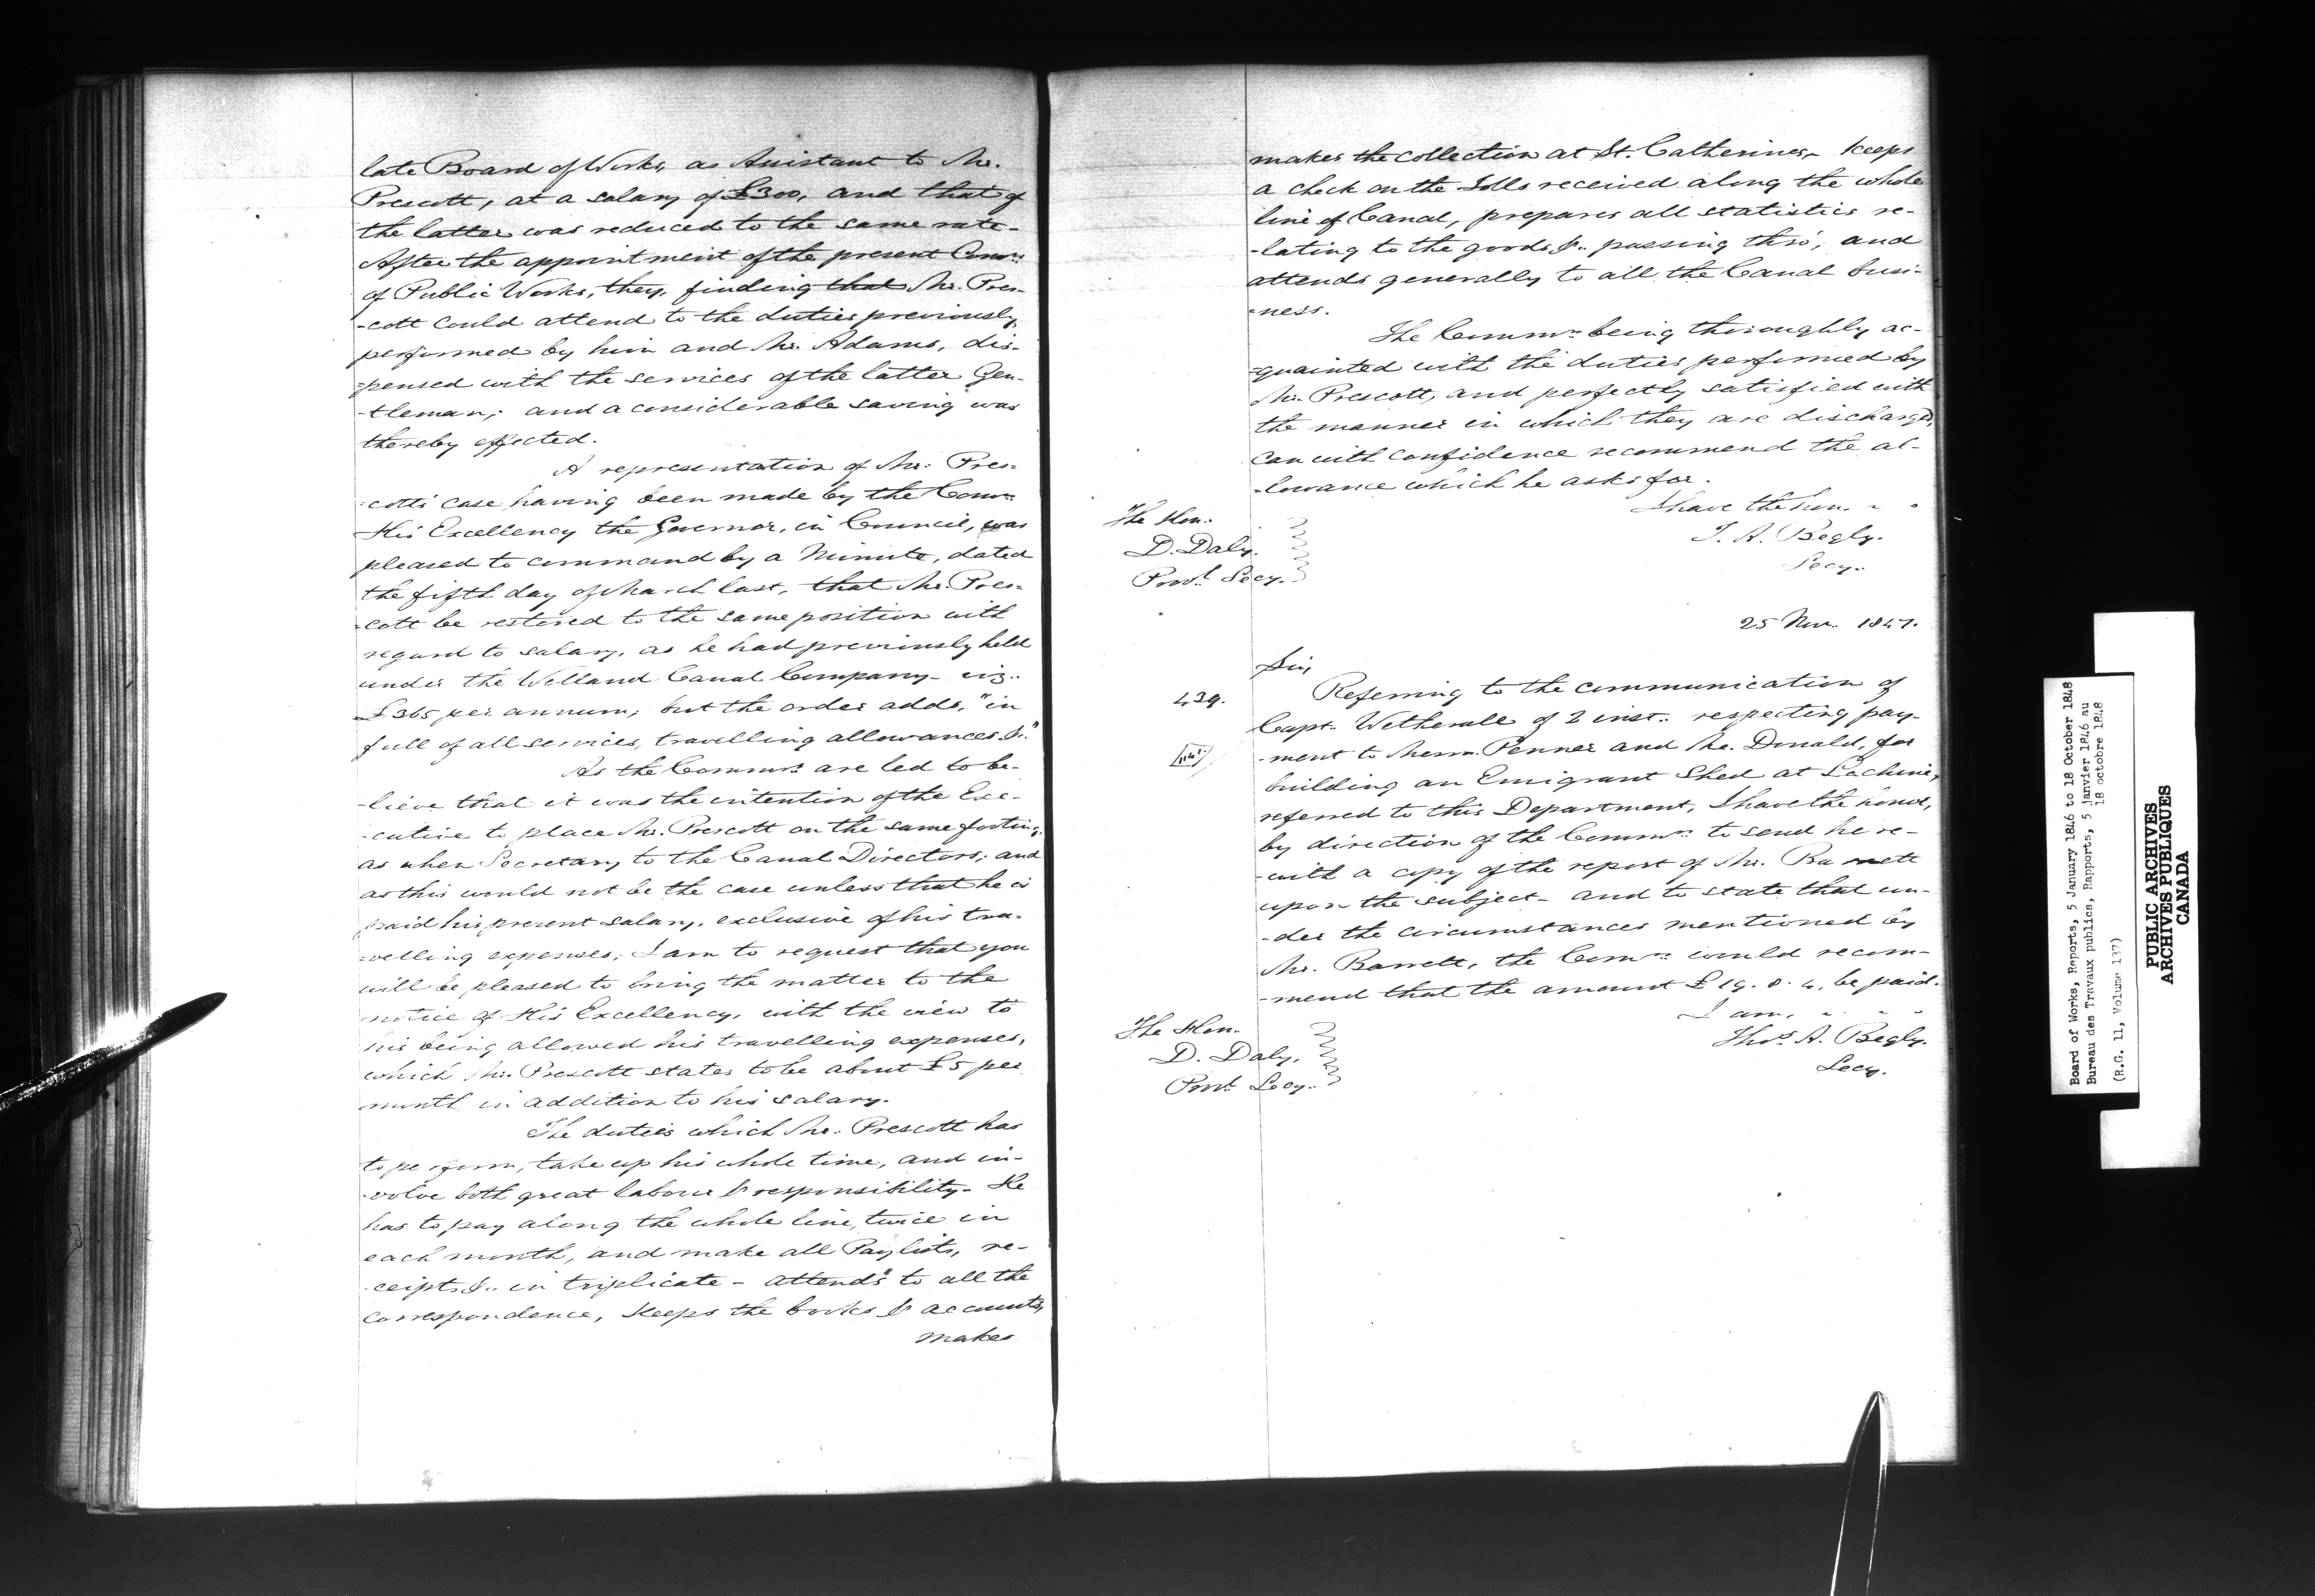 late Board of Works, as Assistant to Mr.
Prescott, at a salary of £300, and that of
the latter was reduced to the same rate-
After the appointment of the present Comrs.
of Public Works, they, finding that Mr. Pres-
-cott could attend to the duties previously
performed by him and Mr. Adams, dis-
-pensed with the services of the latter Gen-
-tleman; and a considerable saving was
thereby effected.
A representation of Mr. Pres-
-cott's case having been made by the Comrs.
His Excellency the Governor, in Council, was
pleased to command by a Minute, dated
the fifth day of March last, that Mr. Pres-
-cott be restored to the same position with
regard to salary, as he had previously held
under the Welland Canal Company- viz..
£365 per annum; but the order adds, "in
full of all services, travelling allowances &c."
As the Commrs. are led to be-
-lieve that it was the intention of the Exe-
-cutive to place Mr. Prescott on the same footing,
as when Secretary to the Canal Directors; and
as this would not be the case unless that he is
paid his present salary, exclusive of his tra-
-velling expenses; I am to request that you
will be pleased to bring the matter to the
notice of His Excellency, with the view to
his being allowed his travelling expenses,
which Mr. Prescott states to be about £5 per
month, in addition to his salary.
The duties which Mr. Prescott has
to perform, take up his whole time, and in-
-volve both great labour & responsibility- He
has to pay along the whole line, twice in
each month, and make all Paylists, re-
-ceipts &c. in triplicate - attends to all the
correspondence, keeps the books & accounts,
makes
makes the collection at St. Catherines- keeps
a check on the Tolls received along the whole
line of Canal, prepares all statistics re-
-lating to the goods &c. passing thro', and
attends generally to all the Canal busi-
-ness.
The Commrs. being thoroughly ac-
-quainted with the duties performed by
Mr. Prescott, and perfectly satisfied with
the manner in which they are discharged,
can with confidence recommend the al-
-lowance which he asks for.
I have the hon.
T. A. Begly.
Secy..
The Hon.
D. Daly.
Provl. Secy.
25 Nov. 1847.
Sir,
439.
Referring to the communication of
Capt. Wetherall of 2 inst.. respecting pay-
-ment to Messrs. Penner and Mc. Donald, for
building an Emigrant Shed at Lachine,
referred to this Department, I have the honor,
by direction of the Commrs. to send here-
-with a copy of the report of Mr. Barrett
upon the subject- and to state that un-
-der the circumstances mentioned by
Mr. Barrett, the Comrs. would recom-
-mend that the amount £19. 8. 4. be paid.
I am,
Thos. A. Begly.
Secy.
The Hon.
D. Daly,
Provl. Secy..
Board of Works, Reports, 5 January 1846 to 18 October 1848
Bureau des Travaux publics, Rapports, 5 janvier 1846 au
18 octobre 1848
(R.G. 11, Volume 137)
PUBLIC ARCHIVES
ARCHIVES PUBLIQUES
CANADA